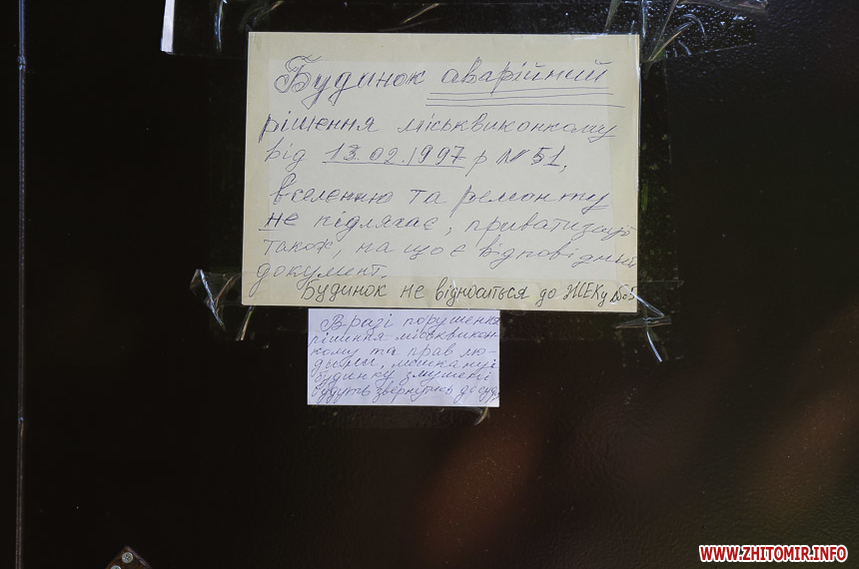 Будинок аварійний
рішення міськвиконкому
від 13.02.1997 р № 51,
вселенню та ремонту
не підлягає, приватизації
також, на що є відповідний
документ.
Будинок не відноситься до ЖЕКу №5
В разі порушення
рішення міськвикон-
кому та прав лю-
дини, мешканці
будинку змушені
будуть звернутись до суду
WWW.ZHITOMIR.INFO